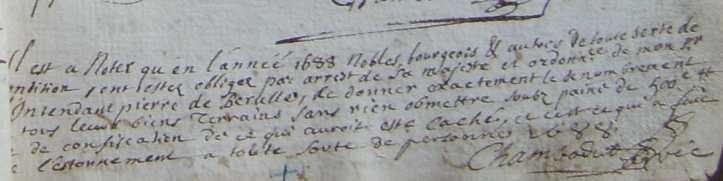 Il est a Noter qu'en l'année 1688 Nobles, bourgeois & autres de toute sorte de
condition, ont estez obligez par arrest de Sa majesté et ordonnce de mon sr
Intendant pierre de Berulle, de donner exactement le denombrement de
tous leurs biens Terrains sans rien obmettre soubz paine de 500 tt
& de confiscation de ce qui auroit esté caché, ce cest ce qui a
l'estonnement a toute sorte de personnes 1688
Chambodut